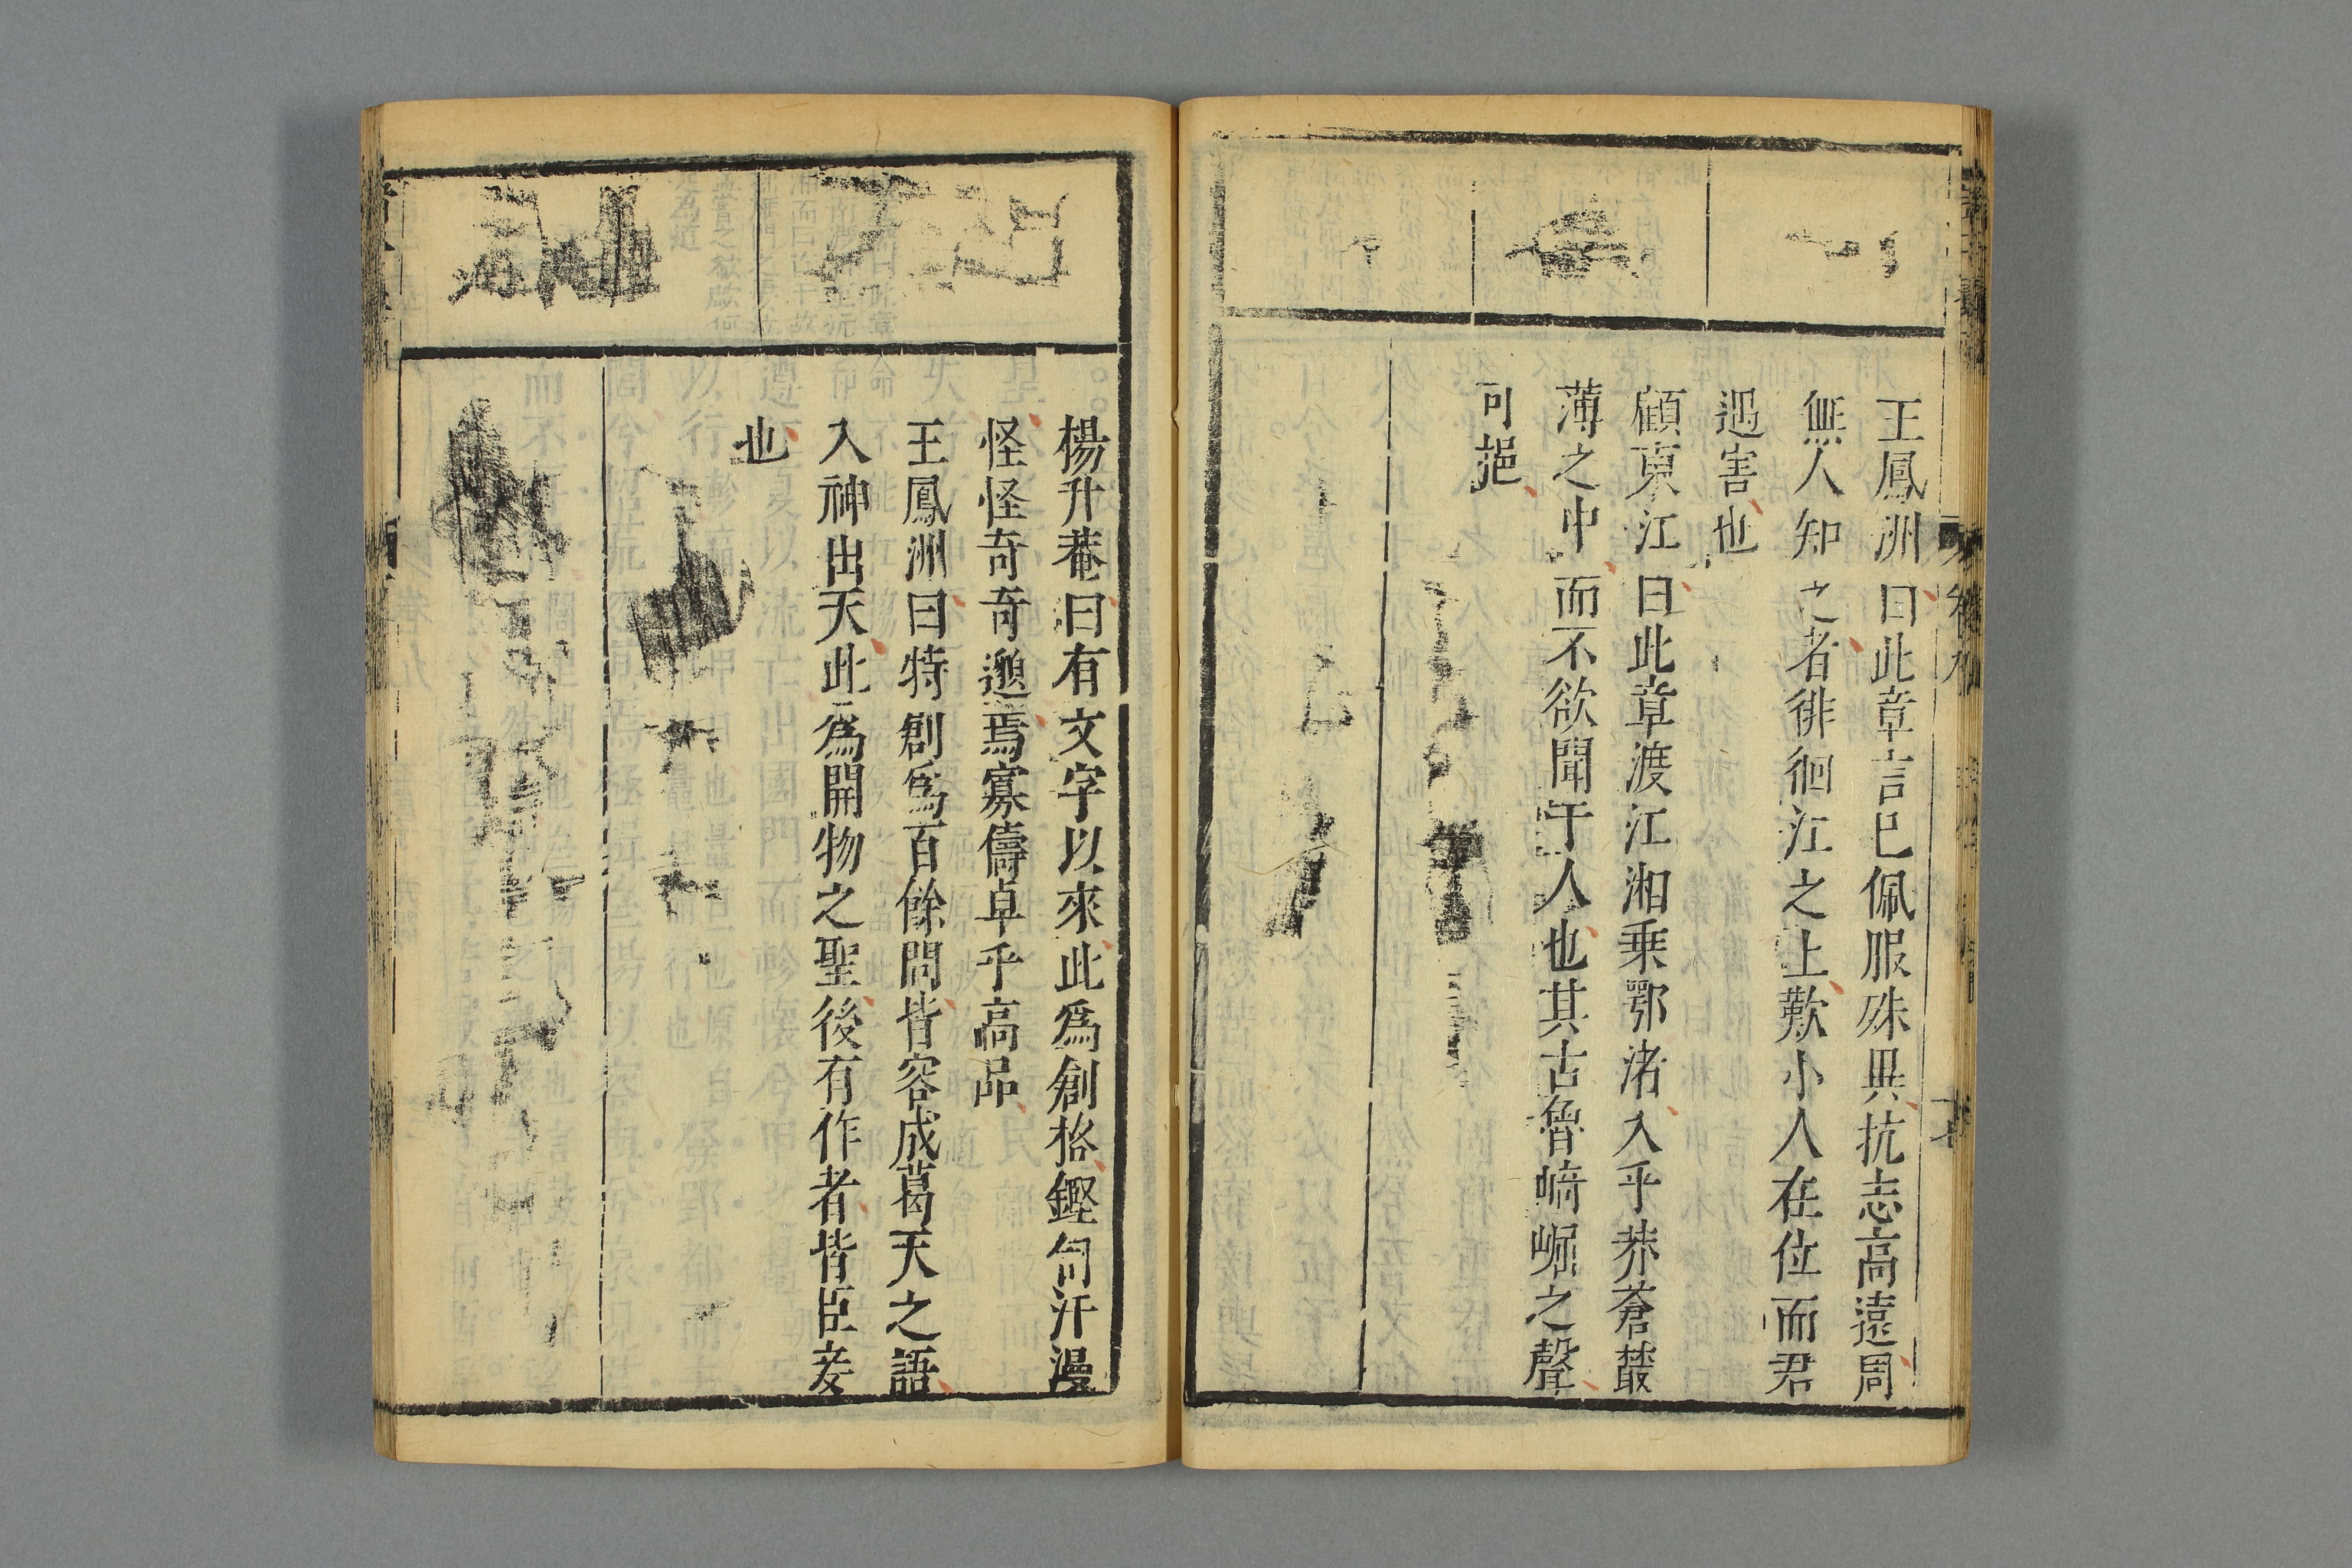 王鳳洲曰此章言已佩服殊異抗志高遠周
無人知之者徘徊江之上歎小人在位而君
遇害也
顧東江曰此章渡江湘乗鄂渚入乎莽蒼叢
薄之中而不欲聞于人也其古魯崎崛之聲
可挹
楊升菴曰有文字以來此爲創格鏗訇汗漫
怪怪奇奇邈焉寡儔卓乎高品
王鳳洲曰特創爲百餘問皆容成葛天之語
入神出天此爲開物之聖後有作者皆臣妾
也